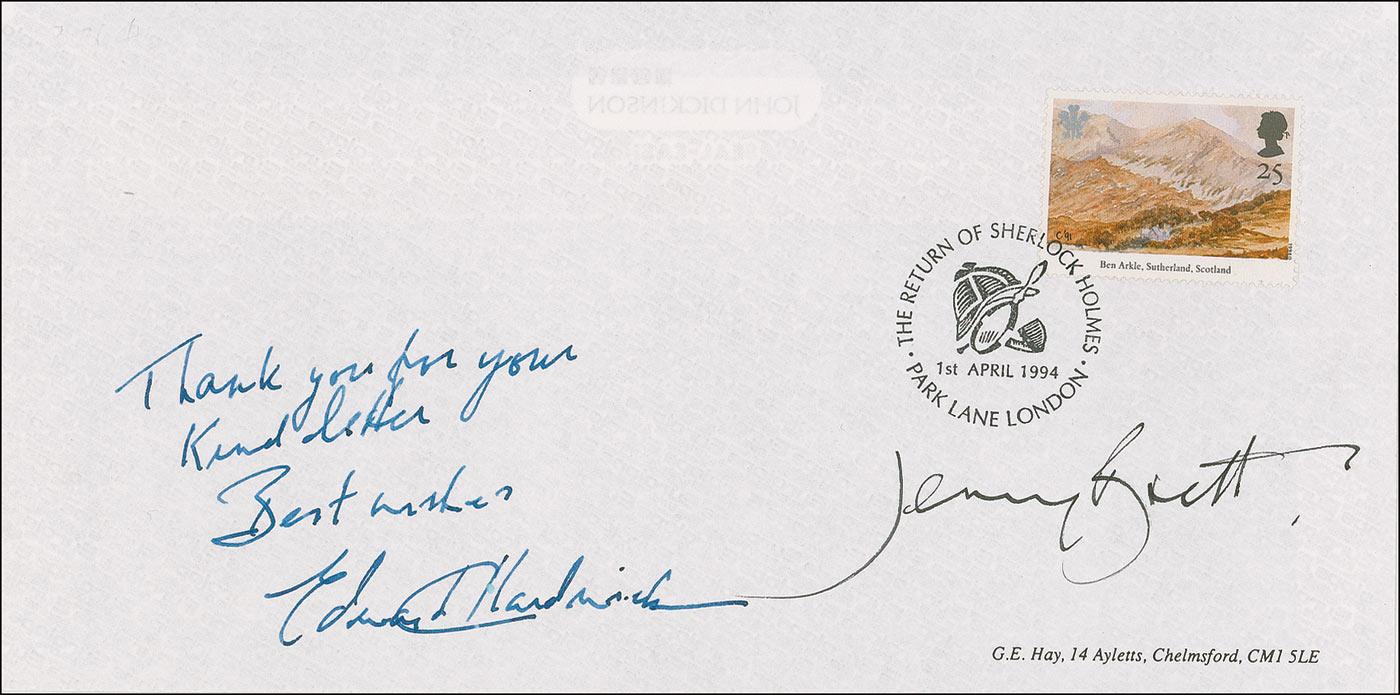 JOHN DICKINSON
25
Ben Arkle, Sutherland, Scotland
THE RETURN OF SHERLOCK HOLMES
1st APRIL 1994
• PARK LANE LONDON •
Thank you for your
Kind letter
Best wishes
Edward Hardwicke
Jeremy Brett
G.E. Hay, 14 Ayletts, Chelmsford, CM1 5LE